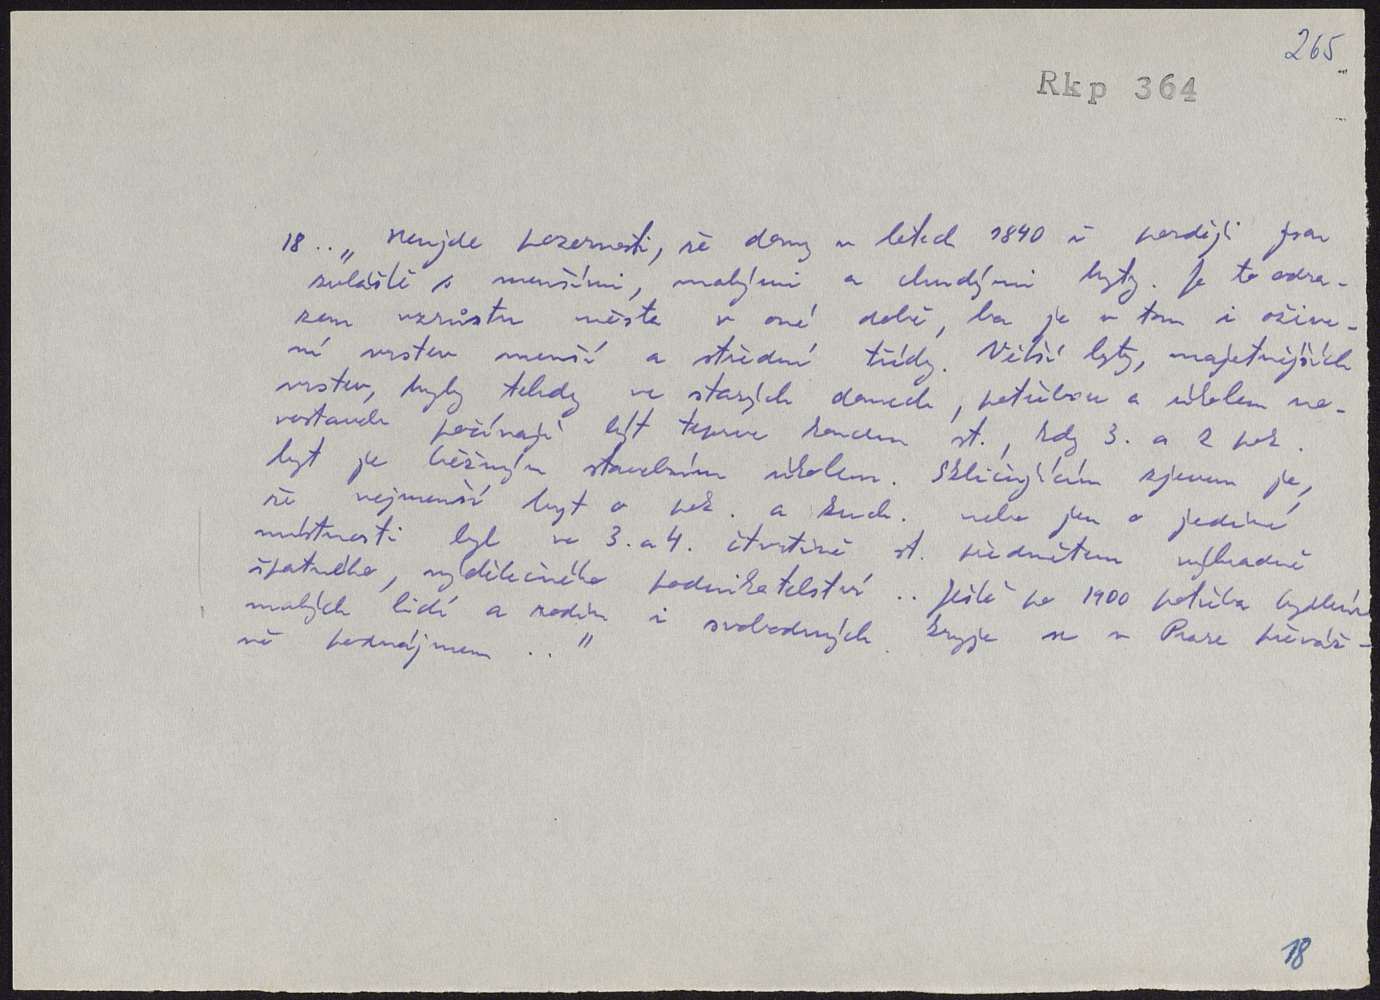 265
Rkp 364
18 .. „ Neujde pozornosti, že domy v létech 1840 i později jsou
zvláště s menšími, malými a chudými byty. Je to odra-
zem vzrůstu města v oné době, ba je v tom i ožive-
ní vrstev menší a střední třídy. Větší byty, majetnějších
vrstev, byly tehdy ve starých domech, potřebou a úkolem no-
vostaveb počínají být teprve koncem st., kdy 3. a 2 pok.
byt je běžným stavebním úkolem. Skličujícím zjevem je,
že nejmenší byt o pok. a kuch. nebo jen o jediné
místnosti byl ve 3. a 4. čtvrtině st. předmětem výhradně
špatného, výdělečného podnikatelství .. Ještě po 1900 potřeba bydlení
malých lidí a rodin i svobodných kryje se v Praze převáž-
ně podnájmem .. "
18